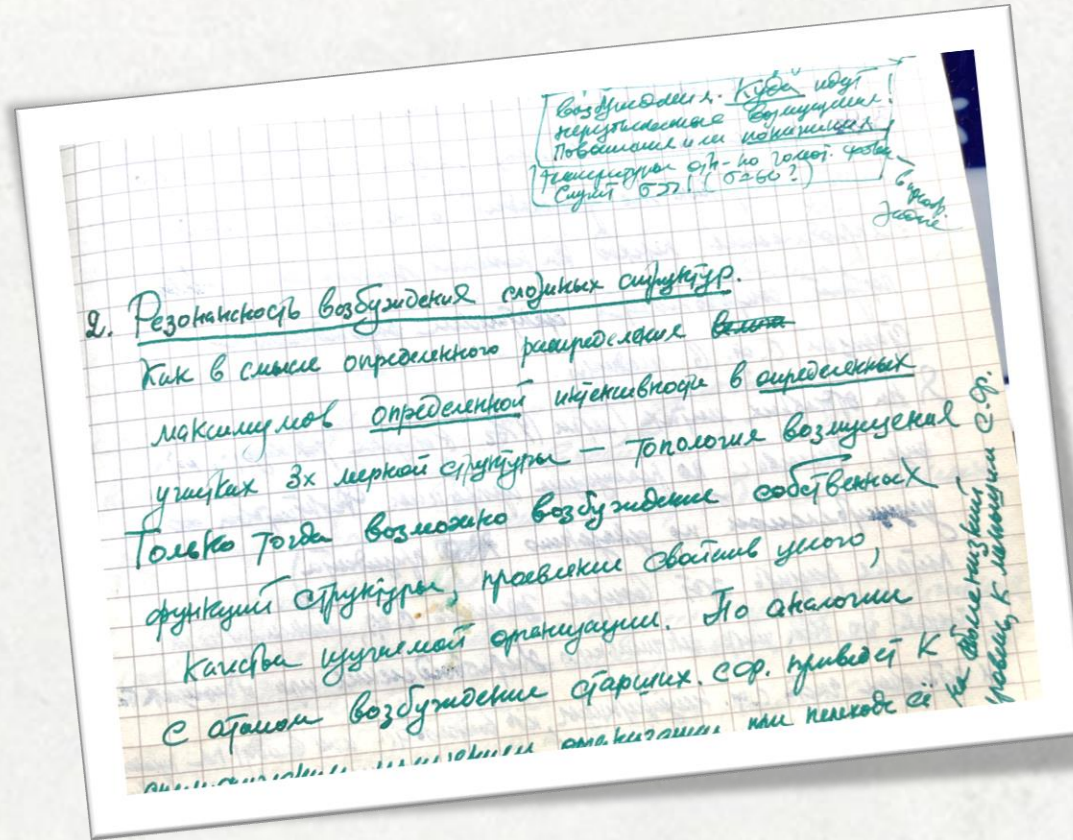 возбуждения. Куда идут
нерезонансные возмущения!
Повышение или понижение
температуры
служит σ>>1 (σ=60?)
2. Резонансность возбуждения сложных структур.
Как в смысле определенного распределения
максимумов определенной интенсивности в определенных
участках 3х мерной структуры — топология возмущения
Только тогда возможно возбуждение собственных
функций структуры, проявление свойств целого,
качества изучаемой организации. По аналогии
с атомом возбуждение старших. с.ф. приведет к
организации или переходе её
на более низкий
уровни, к меньшим с.ф.